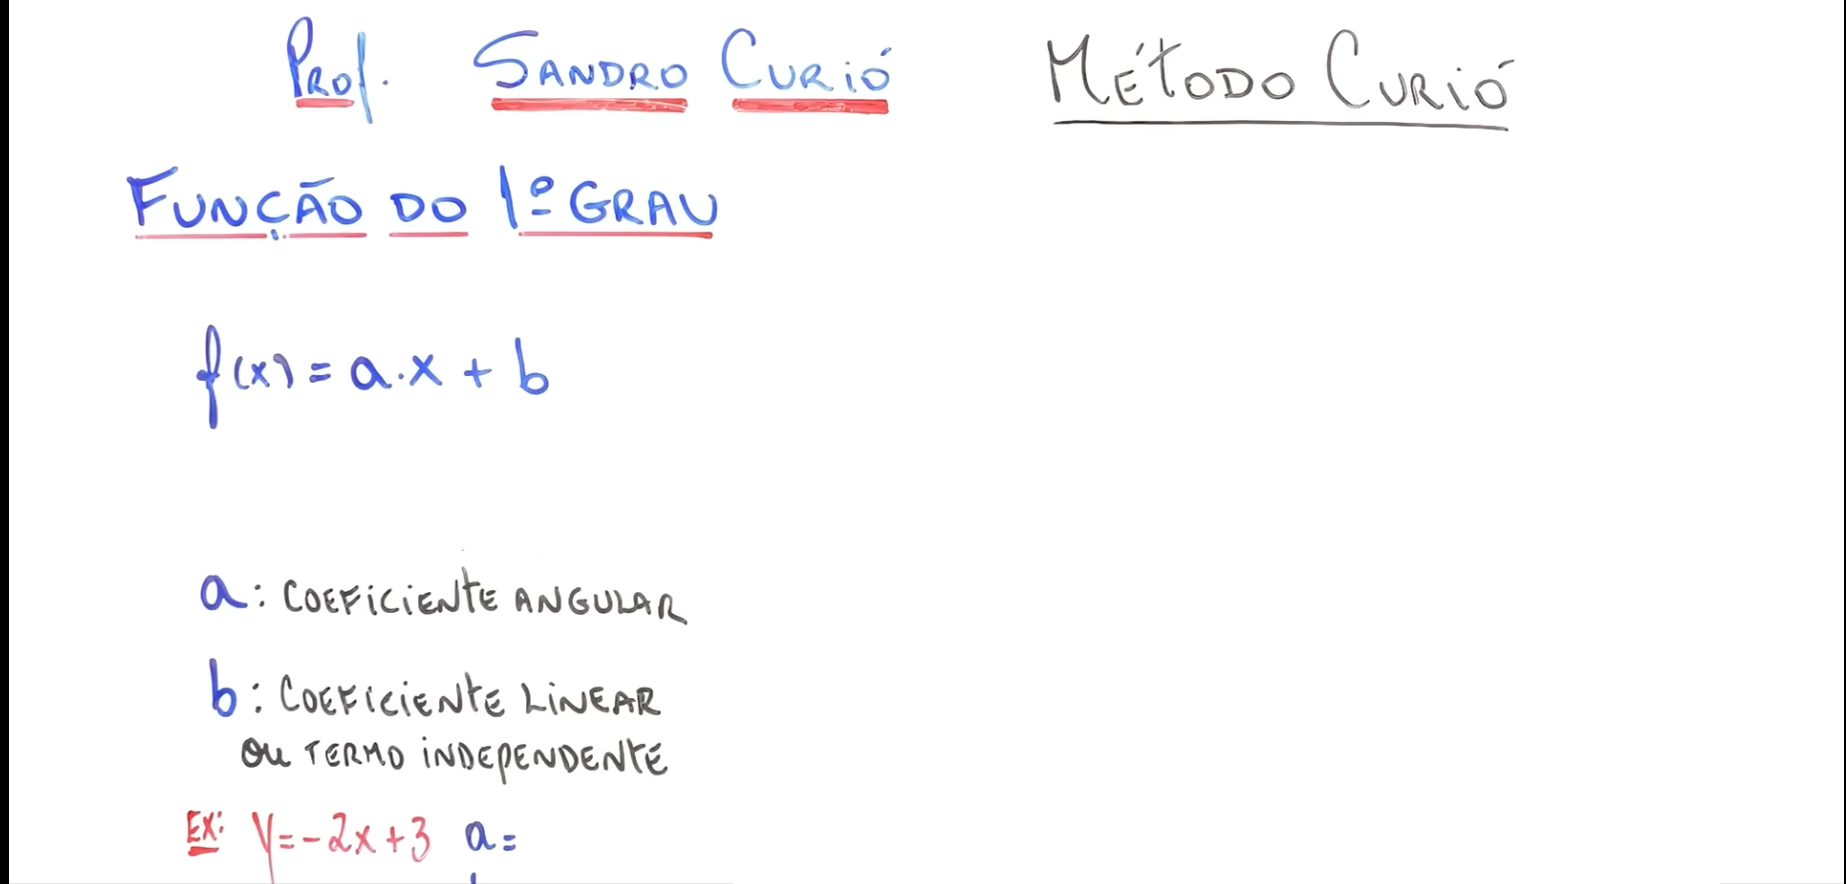 Prof. SANDRO CURIÓ MÉTODO CURIÓ
FUNÇÃO DO 1º GRAU
f(x) = a.x + b
a: COEFICIENTE ANGULAR
b: COEFICIENTE LINEAR
OU TERMO INDEPENDENTE
EX: y=-2x+3 a=